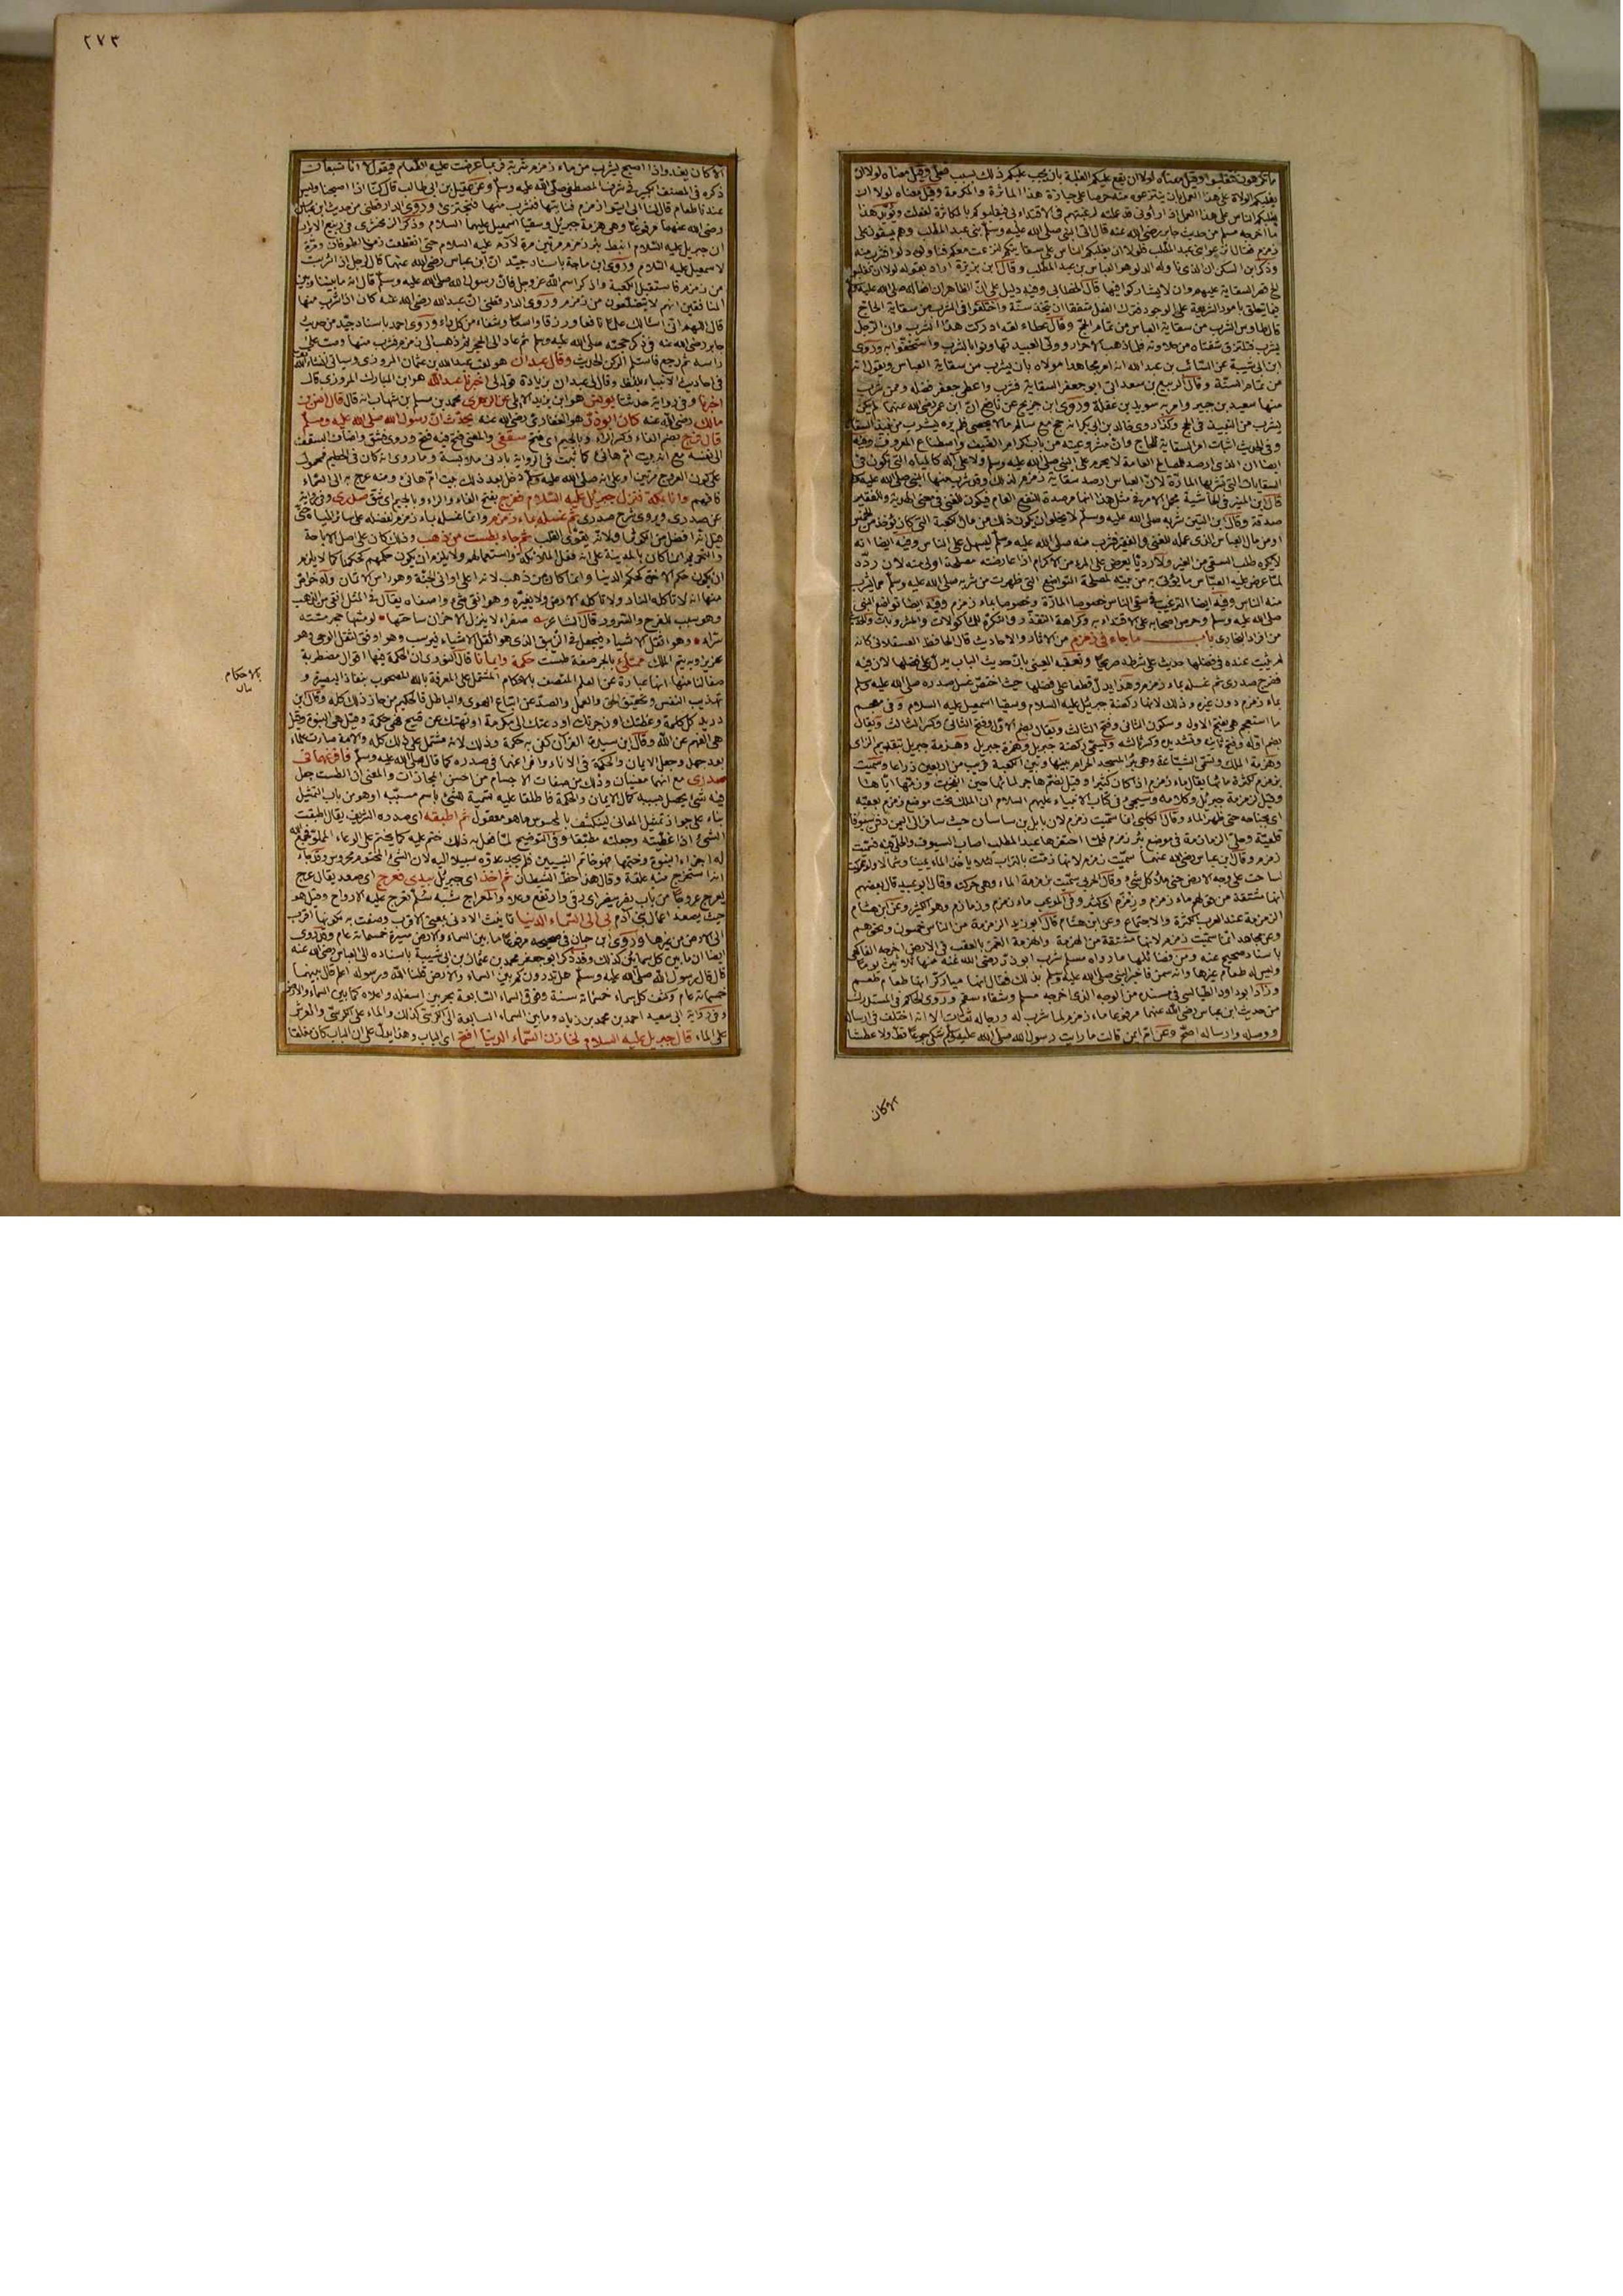 ما تكرهون فتغلبوا وقيل معناه لولا ان يقع عليكم الغلبة بان يجب عليكم ذلك بسبب فعلى وقيل معناه لولا ان
يغلبكم الولاة على هذا العمل بان ينتزعوه منكم حرصا على حيازة هذا الماثرة والمكرمة وقيل معناه لولا ان
يغلبكم الناس على هذا العمل اذا راونى قد عملته لرغبتهم فى الاقتداء بى فيغلبوكم بالمكاثرة لفعلت ويؤيد هذا
ما اخرجه مسلم من حديث جابر رضى الله عنه قال اتى النبى صلى الله عليه وسلم بنى عبد المطلب وهم يسقون على
زمزم فقال انزعوا بنى عبد المطلب فلولا ان يغلبكم الناس على سقايتكم لنزعت معكم فناولوه دلوا فشرب منه
وذكر ابن السكن ان الذى ناوله الدلو هو العباس بن عبد المطلب وقال ابن بزيزة اراد بقوله لولا ان تغلبوا
قصر السقاية عليهم وان لا يشاركوا فيها قال الخطابى وفيه دليل على ان الظاهر ان افعاله صلى الله عليه وسلم
فيما يتعلق بامور الشريعة على الوجوب فترك الفعل شفقا ان يتخذ سنة واختلفوا فى الشرب من سقاية الحاج
قال طاوس الشرب من سقاية العباس من تمام الحج وقال عطاء لقد ادركت هذا الشرب وان الرجل
يشرب فتلتزق شفتاه من حلاوته فلما ذهب الاحرار وولى العبيد تهاونوا بالشرب واستخفوا به وروى
ابن ابى شيبة عن السائب بن عبد الله انه امر مجاهدا مولاه بان يشرب من سقاية العباس ويقول انه
من تمام السنة وقال الربيع بن سعد اتى ابو جعفر السقاية فشرب واعطى جعفر فضله وممن شرب
منها سعيد بن جبير وامر به سويد بن غفلة وروى ابن جريج عن نافع ان ابن عمر رضى الله عنهما لم يكن
يشرب من النبيذ فى الحج وكذا روى خالد بن ابى بكر انه حج مع سالم ما لا يحصى فلم يره يشرب من نبيذ السقاية
وفى الحديث اثبات امر السقاية للحاج وان مشروعيته من باب اكرام الضيف واصطناع المعروف وفيه
ايضا ان الذى ارصد للمصالح العامة لا يحرم على النبى صلى الله عليه وسلم ولا على آله كالمياه التى تكون فى
السقايات التى تشربها المارة لان العباس ارصد سقاية زمزم لذلك وقد شرب منها النبى صلى الله عليه وسلم
قال ابن المنير فى الحاشية يحمل الامر فى مثل هذا انها مرصدة للنفع العام فيكون للغنى فى معنى الهدية وللفقير
صدقة وقال ابن التين شربه صلى الله عليه وسلم لا يخلو ان يكون ذلك من مال الكعبة التى كان يؤخذ من الخمس
او من مال العباس الذى عمله للغنى والفقير فشرب منه صلى الله عليه وسلم ليسهل على الناس وفيه ايضا انه
لا يكره طلب السقى من الغير ولا رد ما يعرض على المرء من الاكرام اذا عارضته مصلحة اولى منه لان رده
لما عرض عليه العباس ما يؤتى به من بيته لمصلحة التواضع التى ظهرت من شربه صلى الله عليه وسلم مما يشرب
منه الناس وفيه ايضا الترغيب فى سقى الناس خصوصا المارة وخصوصا بماء زمزم وفيه ايضا تواضع النبى
صلى الله عليه وسلم وحرص اصحابه على الاقتداء به وكراهة التقذر والتكره للماكولات والمشروبات والحديث
من افراد البخارى باب ما جاء فى زمزم من الآثار والاحاديث قال الحافظ العسقلانى كانه
لم يثبت عنده فى فضلها حديث على شرطه صريحا وتعقبه العينى بان حديث الباب يدل على فضلها لان فيه
ففرج صدرى ثم غسله بماء زمزم وهذا يدل قطعا على فضلها حيث اختص غسل صدره صلى الله عليه وسلم
بماء زمزم دون غيره وذلك لانها ركضة جبرئيل عليه السلام وسقيا اسمعيل عليه السلام وفى معجم
ما استعجم هى بفتح الاول وسكون الثانى وفتح الثالث ويقال بضم الاول وفتح الثانى وكسر الثالث ويقال
بضم اوله وفتح ثانيه وتشديده وكسر ثالثه وتسمى ركضة جبريل وهمزة جبريل وهزمة جبريل بتقديم الزاى
وهزمة الملك وتسمى الشباعة وهى بئر المسجد الحرام بينها وبين الكعبة قريب من اربعين ذراعا وسميت
بزمزم لكثرة مائها يقال ماء زمزم اذا كان كثيرا وقيل لضم هاجر لمائها حين انفجرت وزمها اياها
وقيل لزمزمة جبريل وكلامه وسيجئ فى كتاب الانبياء عليهم السلام ان الملك بحث موضع زمزم بعقبه
اى بجناحه حتى ظهر الماء وقال الكلبى انما سميت زمزم لان بابل بن ساسان حيث سافر الى اليمن دفن سيوفا
قلعية وحلى الزمازمة فى موضع بئر زمزم فلما احتفرها عبد المطلب اصاب السيوف والحلى فبه سميت
زمزم وقال ابن عباس رضى الله عنهما سميت زمزم لانها زمت بالتراب لئلا ياخذ الماء يمينا وشمالا ولو تركت
لساحت على وجه الارض حتى ملأ كل شئ وقال الحربى سميت بزمزمة الماء وهى حركته وقال ابو عبيد قال بعضهم
انها مشتقة من قولهم ماء زمزم وزمزم اى كثير وفى الموعب ماء زمزم وزمازم وهو الكثير وعن ابن هشام
الزمزمة عند العرب الكثرة والاجتماع وعن ابن هشام قال ابو زيد الزمزمة من الناس خمسون ونحوهم
وعن مجاهد انما سميت زمزم لانها مشتقة من الهزمة والهزمة الغمز بالعقب فى الارض اخرجه الفاكهى
باسناد صحيح عنه ومن فضائلها ما رواه مسلم شرب ابو ذر رضى الله عنه منها ثلاثين يوما
وليس له طعام غيرها وانه سمن فاخبر النبى صلى الله عليه وسلم بذلك فقال انها مباركة انها طعام طعم
وزاد ابو داود الطيالسى فى مسنده من الوجه الذى اخرجه مسلم وشفاء سقم وروى الحاكم فى المستدرك
من حديث ابن عباس رضى الله عنهما مرفوعا ماء زمزم لما شرب له ورجاله ثقات الا انه اختلف فى ارساله
ووصله وارساله اصح وعن ام ايمن قالت ما رايت رسول الله صلى الله عليه وسلم شكى جوعا قط ولا عطشا
الا كان
٢٧٣
الا كان يغدو اذا اصبح يشرب من ماء زمزم شربة فربما عرضت عليه الطعام فيقول لا انا شبعان
ذكره فى المصنف الكبير فى شرف المصطفى صلى الله عليه وسلم وعن عقيل بن ابى طالب قال كنا اذا اصبحنا وليس
عندنا طعام قال لنا ابى ايتوا زمزم فناتيها فنشرب منها فنجتزئ وروى الدارقطنى من حديث ابن عباس
رضى الله عنهما مرفوعا وهى هزمة جبريل وسقيا اسمعيل عليهما السلام وذكر الزمخشرى فى ربيع الابرار
ان جبريل عليه السلام انبط بئر زمزم مرتين مرة لآدم عليه السلام حتى انقطعت زمن الطوفان ومرة
لاسمعيل عليه السلام وروى ابن ماجة باسناد جيد ان ابن عباس رضى الله عنهما قال لرجل اذا شربت
من زمزم فاستقبل الكعبة واذكر اسم الله عز وجل فان رسول الله صلى الله عليه وسلم قال انه ما بيننا وبين
المنافقين انهم لا يتضلعون من زمزم وروى الدارقطنى ان عبد الله رضى الله عنه كان اذا شرب منها
قال اللهم انى اسالك علما نافعا ورزقا واسعا وشفاء من كل داء وروى احمد باسناد جيد من حديث
جابر رضى الله عنه فى ذكر حجته صلى الله عليه وسلم ثم عاد الى الحجر ثم ذهب الى زمزم فشرب منها وصب على
راسه ثم رجع فاستلم الركن الحديث وقال عبدان هو لقب عبد الله بن عثمان المروزى وسياتى ان شاء الله
فى احاديث الانبياء بلفظ وقال لى عبدان بزيادة قوله لى اخبرنا عبد الله هو ابن المبارك المروزى قال
اخبرنا وفى رواية حدثنا يونس هو ابن يزيد الايلى عن الزهرى محمد بن مسلم بن شهاب انه قال قال انس بن
مالك رضى الله عنه كان ابو ذر هو الغفارى رضى الله عنه يحدث ان رسول الله صلى الله عليه وسلم
قال فرج بضم الفاء وكسر الراء وبالجيم اى فتح سقفى والمعنى فتح فيه فتح وروى فشق واضاف السقف
الى نفسه مع انه بيت ام هانئ كما ثبت فى الرواية بادنى ملابسة وما روى انه كان فى الحطيم فمحمول
على كون العروج مرتين او على انه صلى الله عليه وسلم دخل بعد ذلك بيت ام هانئ ومنه عرج به الى السماء
فافهم وانا بمكة فنزل جبريل عليه السلام ففرج بفتح الفاء والراء وبالجيم اى شق صدرى وفى رواية
عن صدرى ويروى شرح صدرى ثم غسله بماء زمزم وانما غسله بماء زمزم لفضله على سائر المياه حتى
قيل انه افضل من الكوثر او لانه يقوى القلب ثم جاء بطست من ذهب وذلك كان على اصل الاباحة
والتحريم انما كان بالمدينة على انه فعل الملائكة واستعمالهم ولا يلزم ان يكون حكمهم كحكمنا كما لا يلزم
ان يكون حكم الآخرة كحكم الدنيا وانما كان من ذهب لانه اعلى اوانى الجنة وهو راس الاثمان وله خواص
منها انه لا تاكله النار ولا تاكله الارض ولا يغيره وهو انقى شئ واصفاه يقال فى المثل انقى من الذهب
وهو سبب للفرح والسرور قال الشاعر صفراء لا ينزل الاحزان ساحتها لو مسها حجر مسته
سراء وهو اثقل الاشياء فيجعل فى الزيبق الذى هو اثقل الاشياء فيرسب وهو اوفق لثقل الوحى وهو
عزيز وبه يتم الملك ممتلئ بالجر صفة طست حكمة وايمانا قال النووى ان الحكمة فيها اقوال مضطربة
صفا لنا منها انها عبارة عن العلم المتصف بالاحكام المشتمل على المعرفة بالله المصحوب بنفاذ البصيرة و
تهذيب النفس وتحقيق الحق والعمل والصد عن اتباع الهوى والباطل فالحكيم من حاز ذلك كله وقال ابن
دريد كل كلمة وعظتك او زجرتك او دعتك الى مكرمة او نهتك عن قبيح فهى حكمة وقيل هى النبوة وقيل
هى الفهم عن الله وقال ابن سيده القرآن كفى به حكمة وذلك لانه مشتمل على ذلك كله والامة صارت علماء
بعد جهل وجعل الايمان والحكمة فى الاناء وافراغهما فى صدره كما قال صلى الله عليه وسلم فافرغهما فى
صدرى مع انهما معنيان وذلك من صفات الاجسام من احسن المجازات والمعنى ان الطست جعل
فيه شئ يحصل بسببه كمال الايمان والحكمة فاطلقا عليه تسمية للشئ باسم مسببه او هو من باب التمثيل
بناء على جواز تمثيل المعانى لينكشف بالمحسوس ما هو معقول ثم اطبقه اى صدره الشريف يقال اطبقت
الشئ اذا غطيته وجعلته مطبقا وفى التوضيح لما فعل به ذلك ختم عليه كما يختم على الوعاء المملو فجمع الله
له اجزاء النبوة وختمها فهو خاتم النبيين فلم يجد عدوه سبيلا اليه لان الشئ المختوم محروس وقد جاء
انه استخرج منه علقة وقال هذا حظ الشيطان ثم اخذ اى جبريل بيدى فعرج اى صعد يقال عرج
يعرج عروجا من باب نصر ينصر اى رقى وارتفع وعلا والمعراج شبه سلم تعرج عليه الارواح وقيل هو
حيث يصعد اعمال بنى آدم بى الى السماء الدنيا تانيث الادنى بمعنى الاقرب وصفت به لكونها اقرب
الى الارض من غيرها وروى ابن حبان فى صحيحه مرفوعا ما بين السماء والارض مسيرة خمسمائة عام وقد روى
ايضا ان ما بين كل سمائين كذلك وقد ذكر ابو جعفر محمد بن عثمان بن ابى شيبة باسناده الى العباس رضى الله عنه
قال قال رسول الله صلى الله عليه وسلم هل تدرون كم بين السماء والارض قلنا الله ورسوله اعلم قال بينهما
خمسمائة عام وكثف كل سماء خمسمائة سنة وفوق السماء السابعة بحر بين اسفله واعلاه كما بين السماء والارض
وفى رواية ابى سعيد احمد بن محمد بن زياد وما بين السماء السابعة الى الكرسى كذلك والماء على الكرسى والعرش
على الماء قال جبريل عليه السلام لخازن السماء الدنيا افتح اى الباب وهذا يدل على ان الباب كان مغلقا
بالاحكام